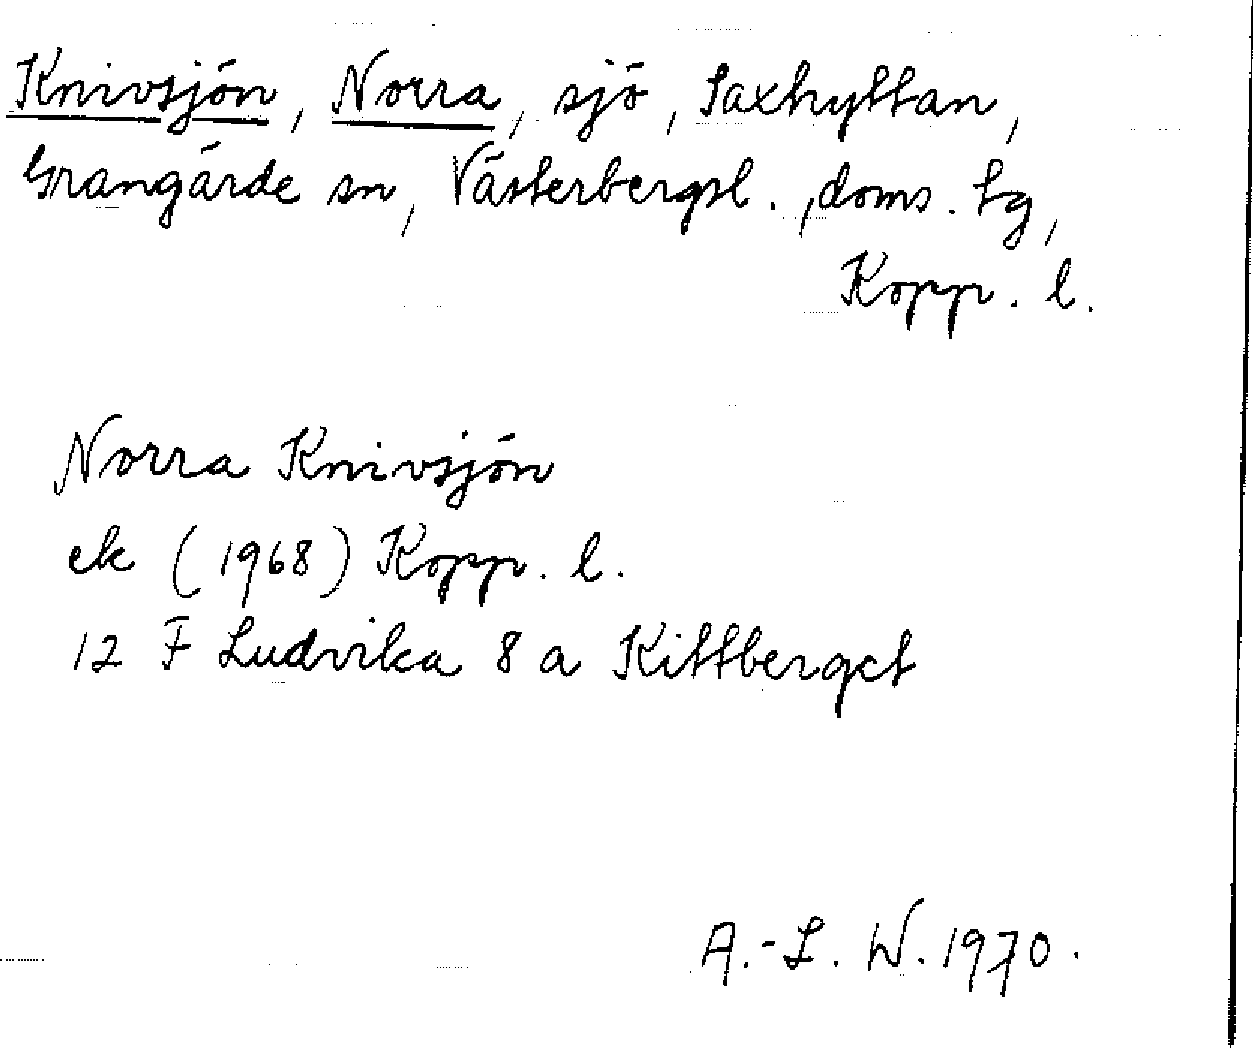 Knivsjön, Norra, sjö, Saxhyttan,
Grangärde sn, Västerbergsl., doms. tg,
Kopp. l.
Norra Knivsjön
ek (1968) Kopp. l.
12 F Ludvika 8 a Kittberget
A.-L. W. 1970.